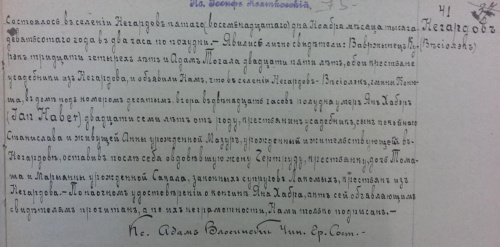 Кс. Іосифъ
41
Состоялось въ селеніи Негардовъ пятаго (восемнадцатаго) дня Ноября мѣсяца тысяча Негардовъ
девятьсотаго года въ два часа по полудни.— Явились лично свидѣтели: Ваврженецъ
тридцати четырехъ лѣтъ и Адамъ двадцати пяти лѣтъ, оба крестьяне
усадебники изъ Негардова, и объявили Намъ, что въ селеніи Негардовъ-
въ домѣ подъ номеромъ десятымъ, вчера въ двѣнадцать часовъ полудня умеръ Янъ Хаберъ
(Jan Haber) двадцати семи лѣтъ отъ роду, крестьянинъ усадебникъ, сынъ покойнаго
Станислава и живущей Анны урожденной Мазуръ, урожденный и жительствующій въ
Негардовѣ, оставивъ послѣ себя овдовѣвшую жену Гертруду, крестьянку, дочь Тома-
ша и Маріанны урожденной законныхъ супруговъ крестьянъ изъ
Негардова.— По наочномъ удостовѣреніи о кончинѣ Яна Хабра, актъ сей объявляющимъ
свидѣтелямъ прочитанъ, а по ихъ неграмотности, Нами только подписанъ.—
Кс. Адамъ Чин. Гр. Сост.—